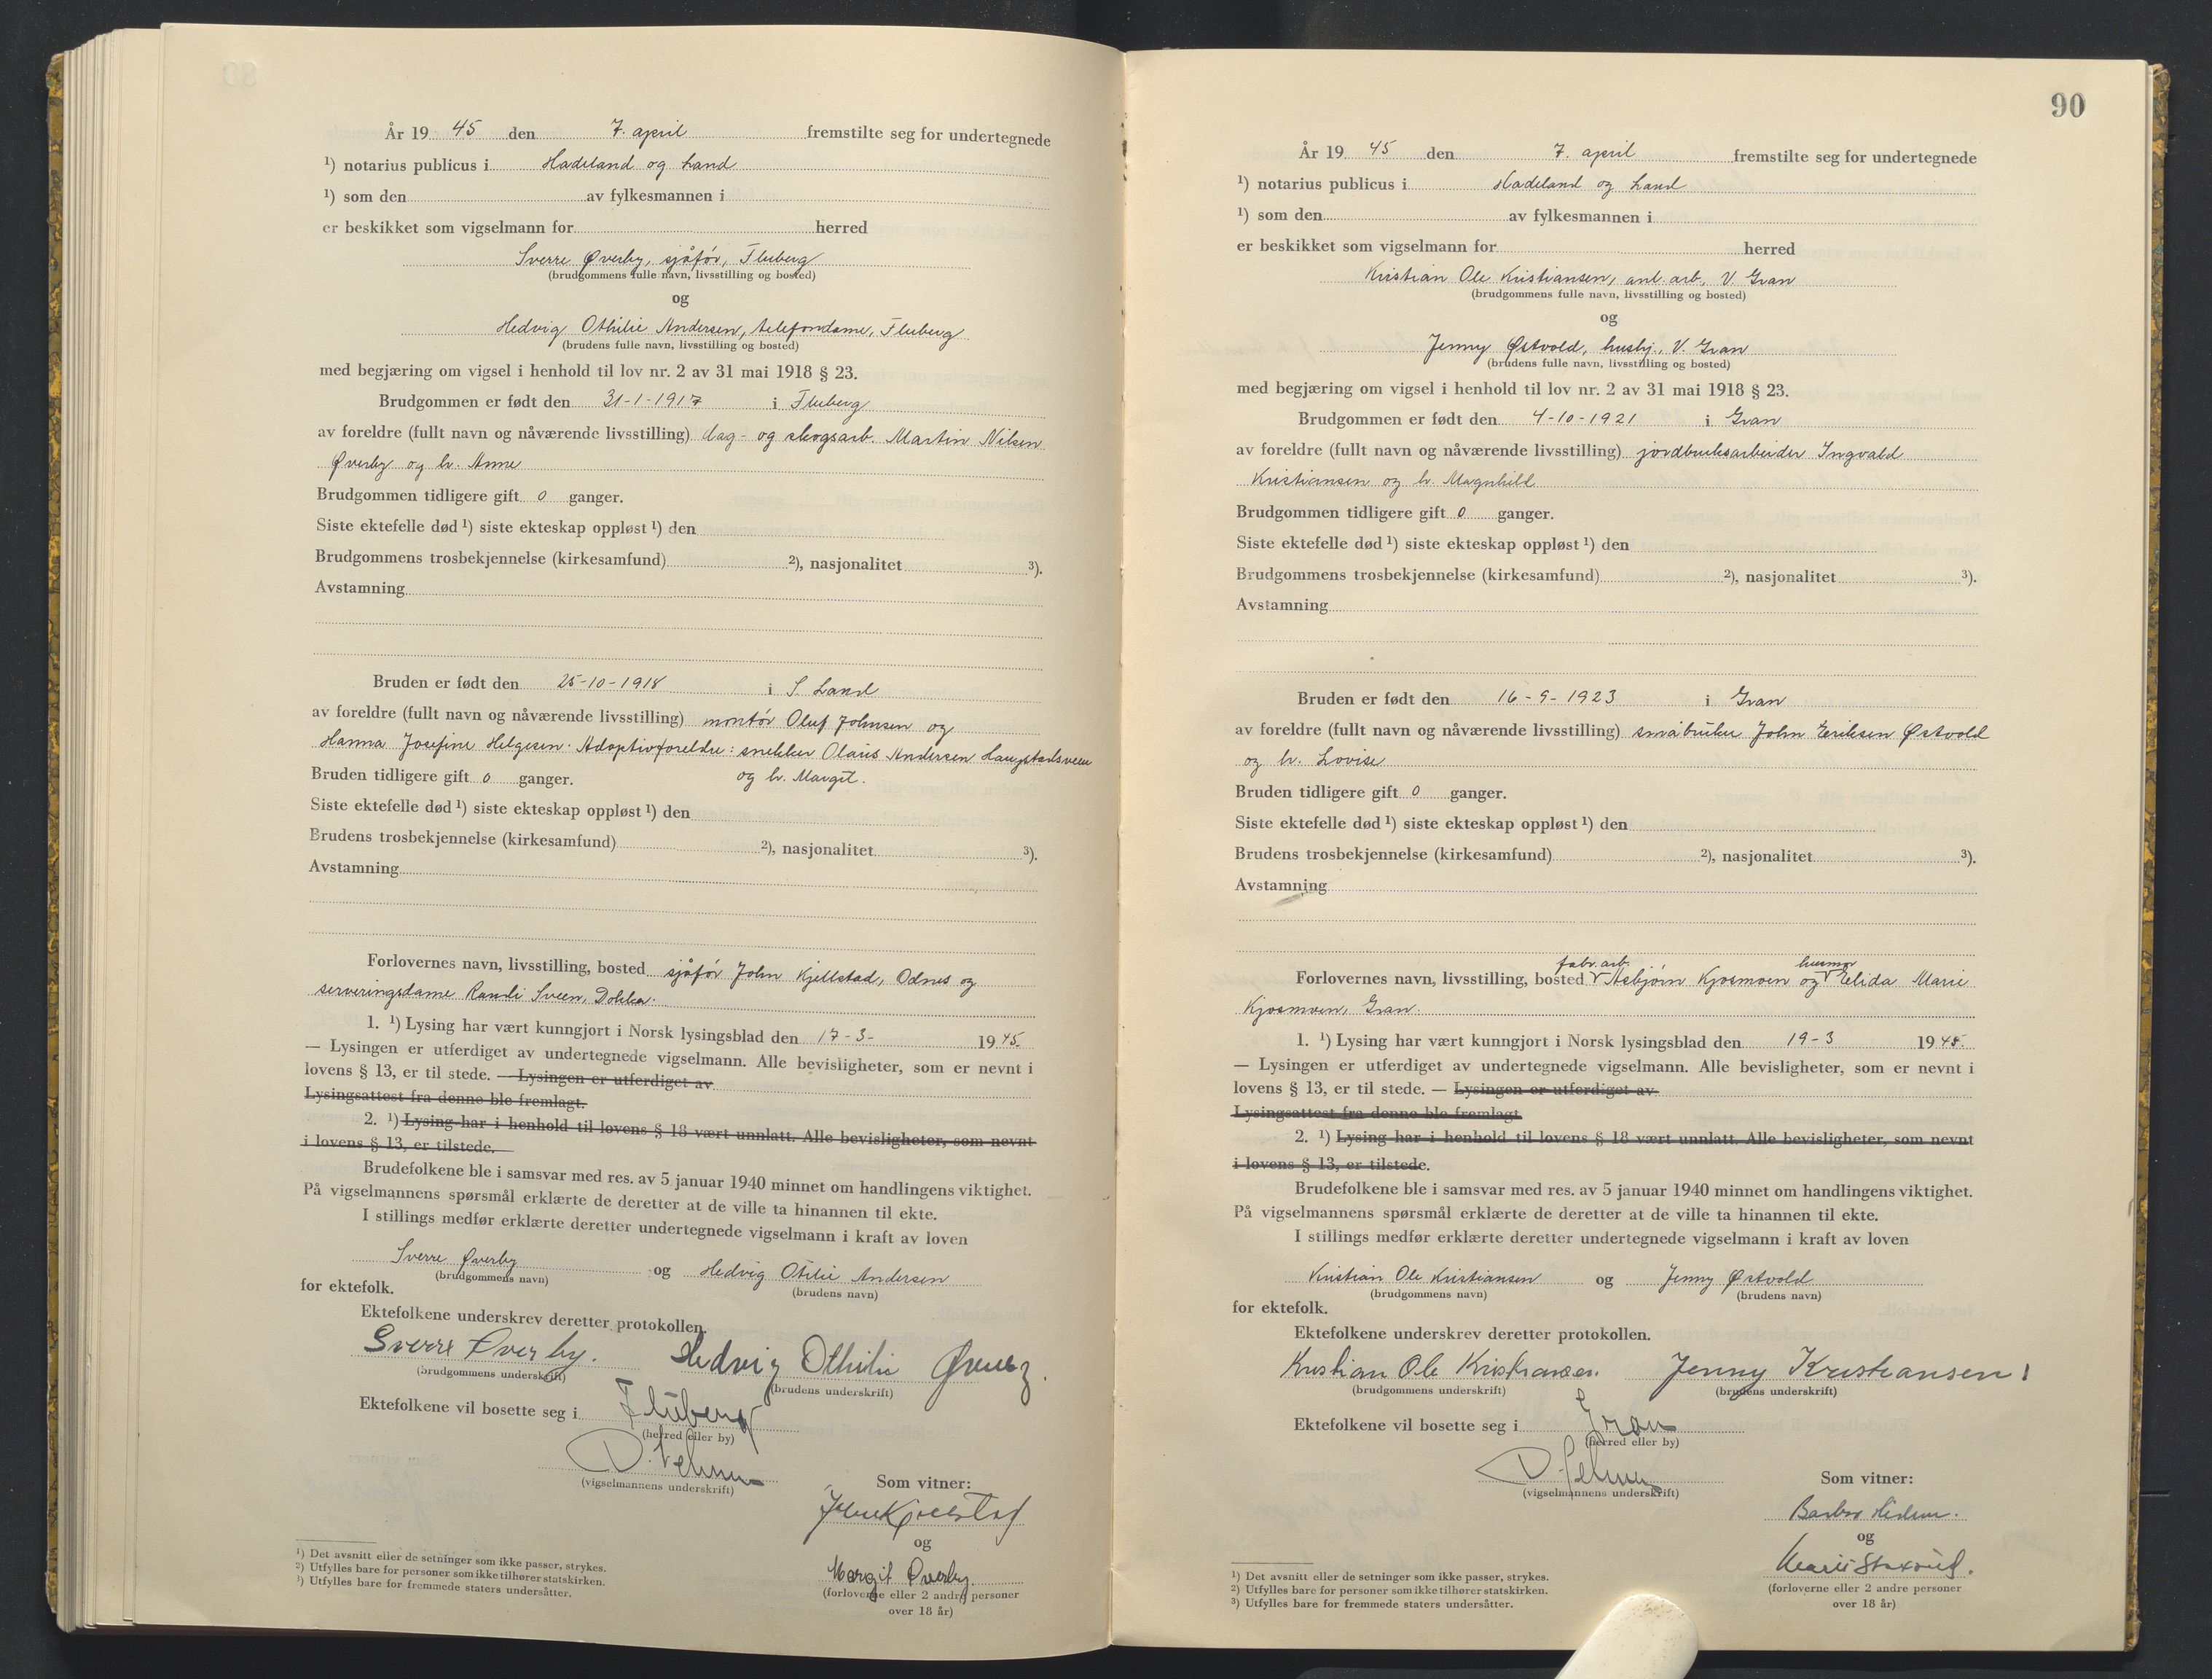 År 19 45 den 7. april fremstilte seg for undertegnede
¹) notarius publicus i Hadeland og Land
¹) som den av fylkesmannen i
er beskikket som vigselmann for herred
Sverre Øverby, sjåfør, Fluberg
(brudgommens fulle navn, livsstilling og bosted)
og
Hedvig Othilie Andersen, telefondame, Fluberg
(brudens fulle navn, livsstilling og bosted)
med begjæring om vigsel i henhold til lov nr. 2 av 31 mai 1918 § 23.
Brudgommen er født den 31-1-1917 i Fluberg
av foreldre (fullt navn og nåværende livsstilling) dag- og skogsarb. Martin Nilsen
Øverby og h. Anne
Brudgommen tidligere gift 0 ganger.
Siste ektefelle død ¹) siste ekteskap oppløst ¹) den
Brudgommens trosbekjennelse (kirkesamfund) ²), nasjonalitet ³).
Avstamning
Bruden er født den 25-10-1918 i S. Land
av foreldre (fullt navn og nåværende livsstilling) montør Oluf Johnsen og
Hanna Josefine Helgesen. Adoptivforeldre: snekker Olaus Andersen Haugstadsveen
Bruden tidligere gift 0 ganger. og h. Margit.
Siste ektefelle død ¹) siste ekteskap oppløst ¹) den
Brudens trosbekjennelse (kirkesamfund) ²), nasjonalitet ³).
Avstamning
Forlovernes navn, livsstilling, bosted sjåfør John Kjellstad, Odnes og
serveringsdame Randi Sveen, Dokka.
1. ¹) Lysing har vært kunngjort i Norsk lysingsblad den 17-3- 1945.
— Lysingen er utferdiget av undertegnede vigselmann. Alle bevisligheter, som er nevnt i
lovens § 13, er til stede. — Lysingen er utferdiget av
Lysingsattest fra denne ble fremlagt.
2. ¹) Lysing har i henhold til lovens § 18 vært unnlatt. Alle bevisligheter, som nevnt
i lovens § 13, er tilstede.
Brudefolkene ble i samsvar med res. av 5 januar 1940 minnet om handlingens viktighet.
På vigselmannens spørsmål erklærte de deretter at de ville ta hinannen til ekte.
I stillings medfør erklærte deretter undertegnede vigselmann i kraft av loven
Sverre Øverby og Hedvig Otilie Andersen
(brudgommens navn) (brudens navn)
for ektefolk.
Ektefolkene underskrev deretter protokollen.
Sverre Øverby. Hedvig Othilie Øverby.
(brudgommens underskrift) (brudens underskrift)
Ektefolkene vil bosette seg i Fluberg
(herred eller by)
(vigselmannens underskrift)
Som vitner:
John Kjellstad
og
Margit Øverby.
(forloverne eller 2 andre personer
over 18 år)
¹) Det avsnitt eller de setninger som ikke passer, strykes.
²) Utfylles bare for personer som ikke tilhører statskirken.
³) Utfylles bare for fremmede staters undersåtter.
90
År 19 45 den 7. april fremstilte seg for undertegnede
¹) notarius publicus i Hadeland og Land
¹) som den av fylkesmannen i
er beskikket som vigselmann for herred
Kristian Ole Kristiansen, anl. arb., V. Gran
(brudgommens fulle navn, livsstilling og bosted)
og
Jenny Østvold, husbj., V. Gran
(brudens fulle navn, livsstilling og bosted)
med begjæring om vigsel i henhold til lov nr. 2 av 31 mai 1918 § 23.
Brudgommen er født den 4-10-1921 i Gran
av foreldre (fullt navn og nåværende livsstilling) jordbruksarbeider Ingvald
Kristiansen og h. Magnhild
Brudgommen tidligere gift 0 ganger.
Siste ektefelle død ¹) siste ekteskap oppløst ¹) den
Brudgommens trosbekjennelse (kirkesamfund) ²), nasjonalitet ³).
Avstamning
Bruden er født den 16-9-1923 i Gran
av foreldre (fullt navn og nåværende livsstilling) småbruker John Eriksen Østvold
og h. Lovise
Bruden tidligere gift 0 ganger.
Siste ektefelle død ¹) siste ekteskap oppløst ¹) den
Brudens trosbekjennelse (kirkesamfund) ²), nasjonalitet ³).
Avstamning
fabr. arb. husmor
Forlovernes navn, livsstilling, bosted Asbjørn Kjosmoen og Elida Marie
Kjosmoen, Gran.
1. ¹) Lysing har vært kunngjort i Norsk lysingsblad den 19-3 1945.
— Lysingen er utferdiget av undertegnede vigselmann. Alle bevisligheter, som er nevnt i
lovens § 13, er til stede. — Lysingen er utferdiget av
Lysingsattest fra denne ble fremlagt
2. ¹) Lysing har i henhold til lovens § 18 vært unnlatt. Alle bevisligheter, som nevnt
i lovens § 13, er tilstede.
Brudefolkene ble i samsvar med res. av 5 januar 1940 minnet om handlingens viktighet.
På vigselmannens spørsmål erklærte de deretter at de ville ta hinannen til ekte.
I stillings medfør erklærte deretter undertegnede vigselmann i kraft av loven
Kristian Ole Kristiansen og Jenny Østvold
(brudgommens navn) (brudens navn)
for ektefolk.
Ektefolkene underskrev deretter protokollen.
Kristian Ole Kristiansen. Jenny Kristiansen
(brudgommens underskrift) (brudens underskrift)
Ektefolkene vil bosette seg i Gran
(herred eller by)
(vigselmannens underskrift)
Som vitner:
Barbro
og
(forloverne eller 2 andre personer
over 18 år)
¹) Det avsnitt eller de setninger som ikke passer, strykes.
²) Utfylles bare for personer som ikke tilhører statskirken.
³) Utfylles bare for fremmede staters undersåtter.